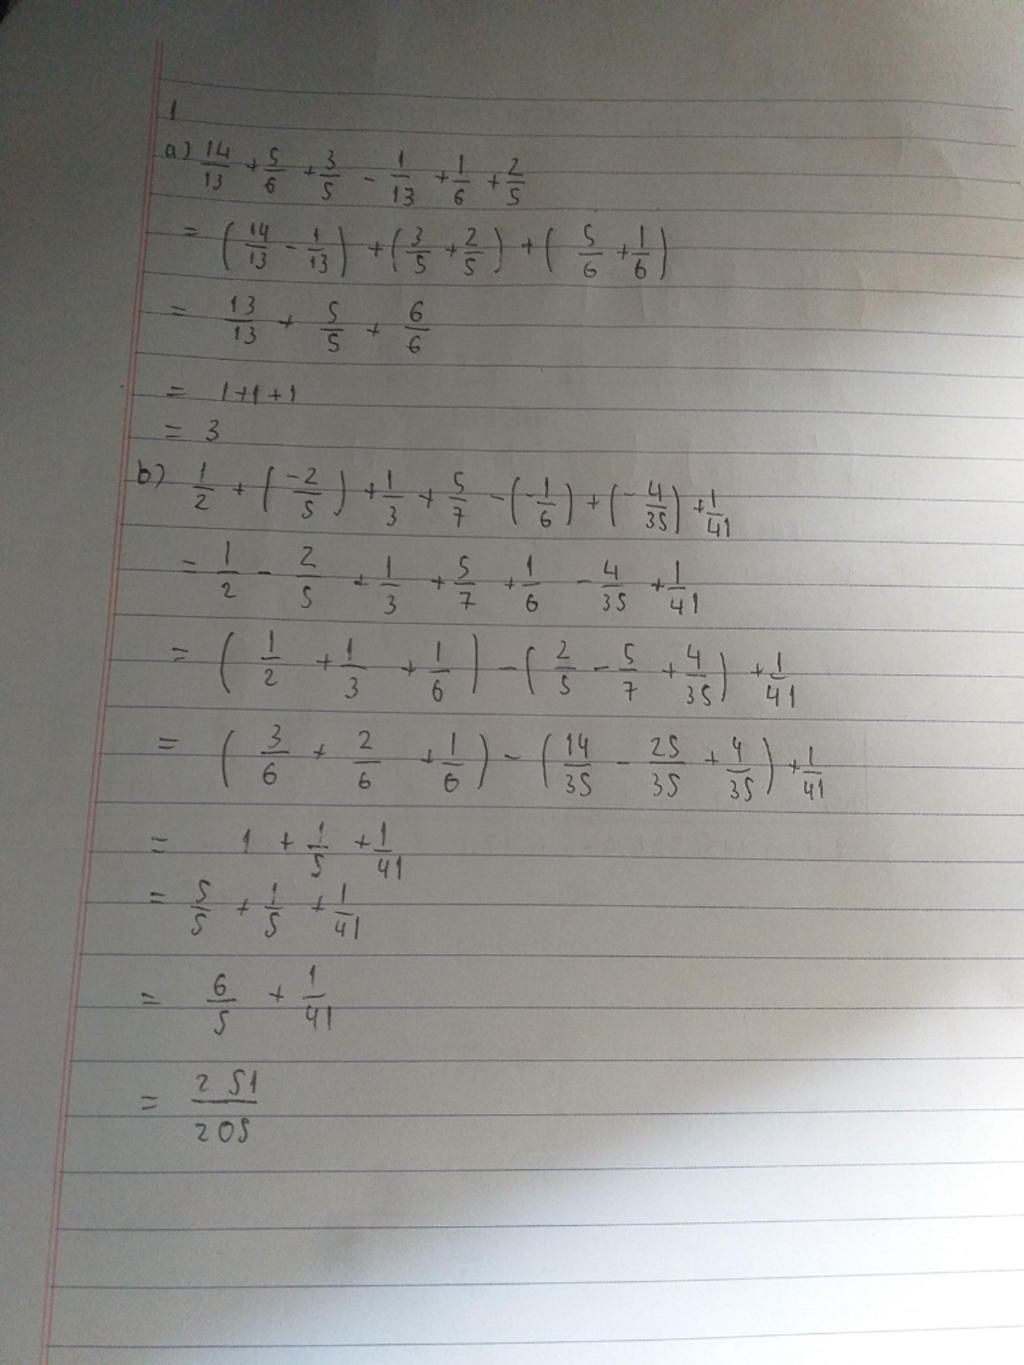 1
a) 14/13 + 5/6 + 3/5 - 1/13 + 1/6 + 2/5
= (14/13 - 1/13) + (3/5 + 2/5) + (5/6 + 1/6)
= 13/13 + 5/5 + 6/6
= 1+1+1
= 3
b) 1/2 + (-2/5) + 1/3 + 5/7 - (-1/6) + (-4/35) + 1/41
= 1/2 - 2/5 + 1/3 + 5/7 + 1/6 - 4/35 + 1/41
= (1/2 + 1/3 + 1/6) - (2/5 - 5/7 + 4/35) + 1/41
= (3/6 + 2/6 + 1/6) - (14/35 - 25/35 + 4/35) + 1/41
= 1 + 1/5 + 1/41
= 5/5 + 1/5 + 1/41
= 6/5 + 1/41
= 251/205